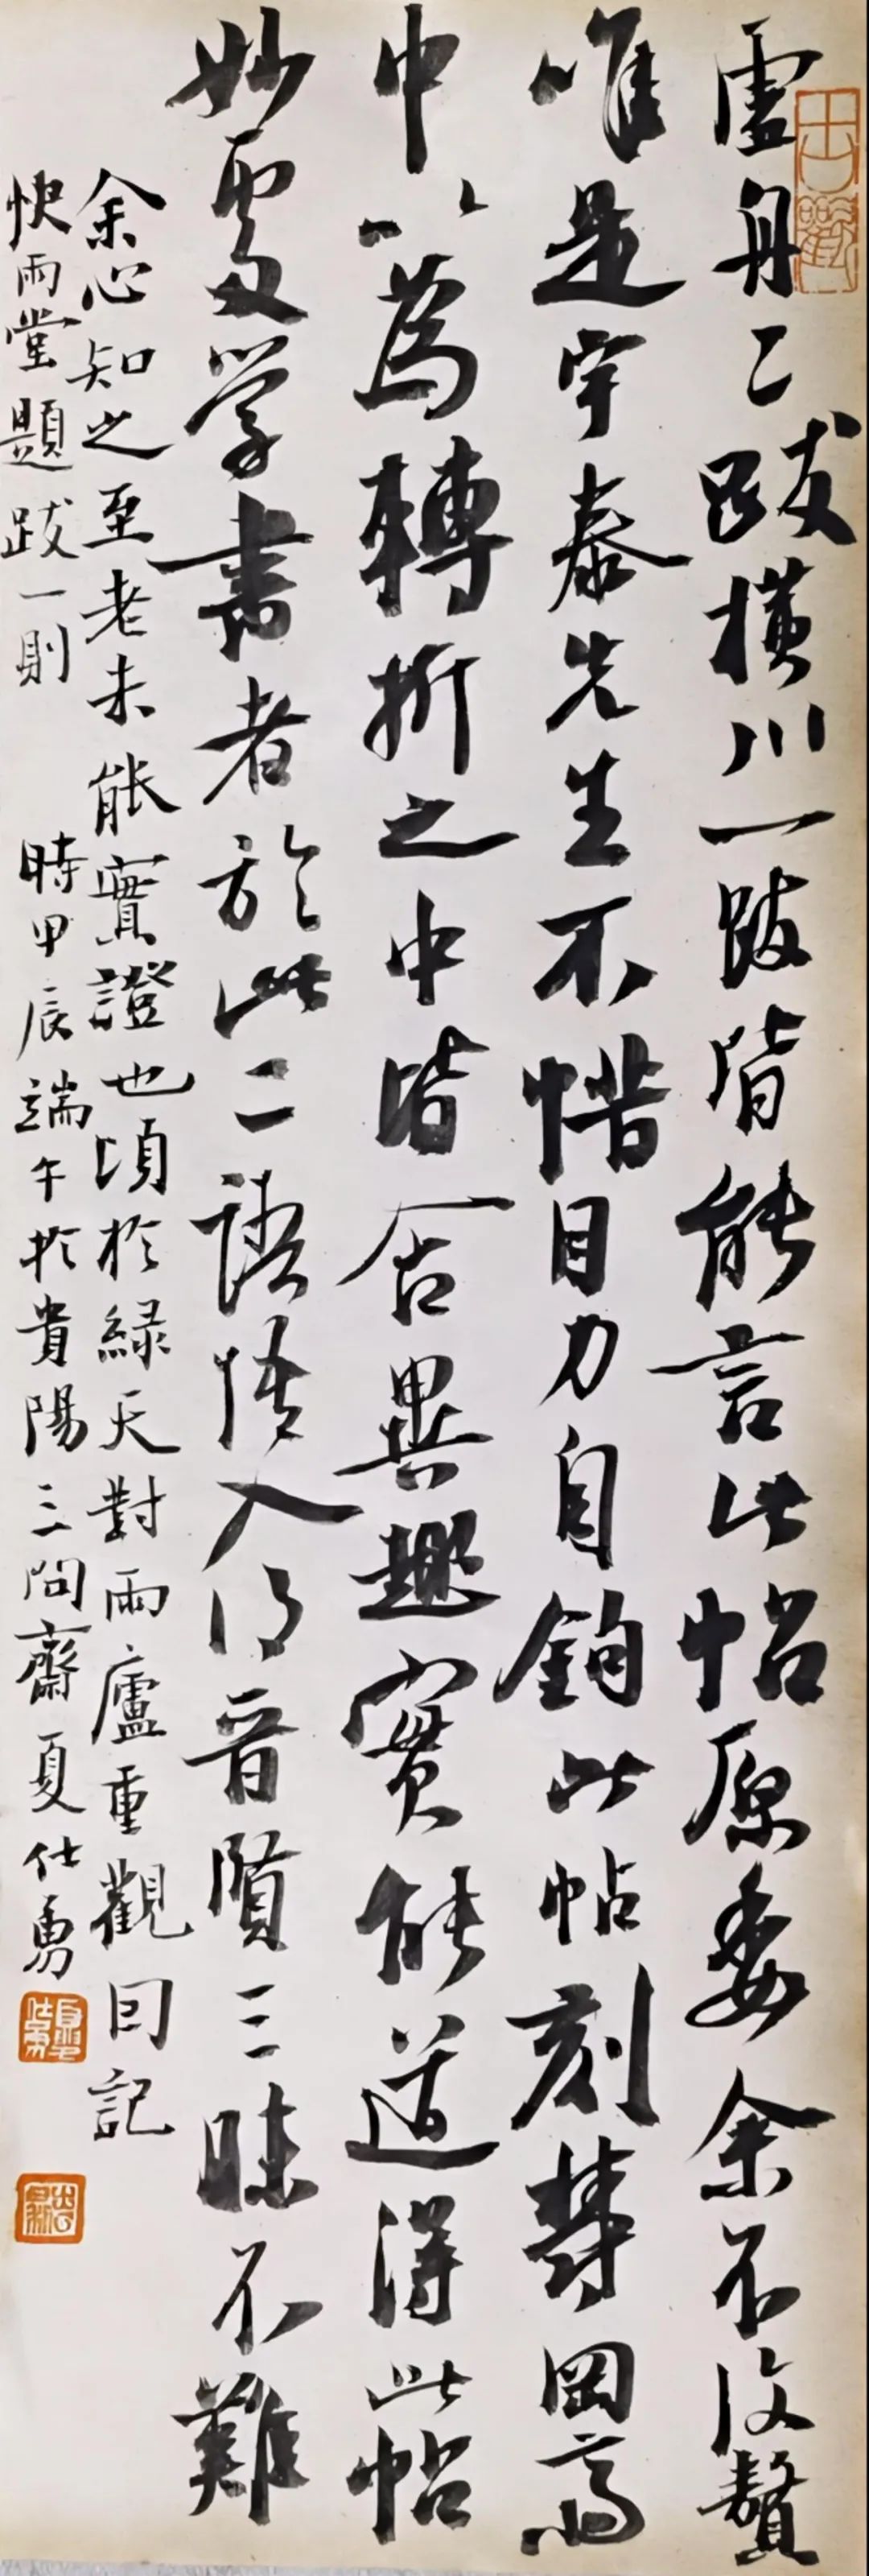 虛舟二跋橫川一跋皆能言此帖原委余不復贅
唯是宇泰先生不惜目力自鉤此帖刻鬱岡齋
中以為轉折之中皆含異趣實能道得此帖
妙處学書者於此二語悟入得晉賢三昧不難
余心知之至老未能實證也頃於綠天對雨廬重觀因記
快雨堂題跋一則 時甲辰端午於貴陽三問齋夏仕勇